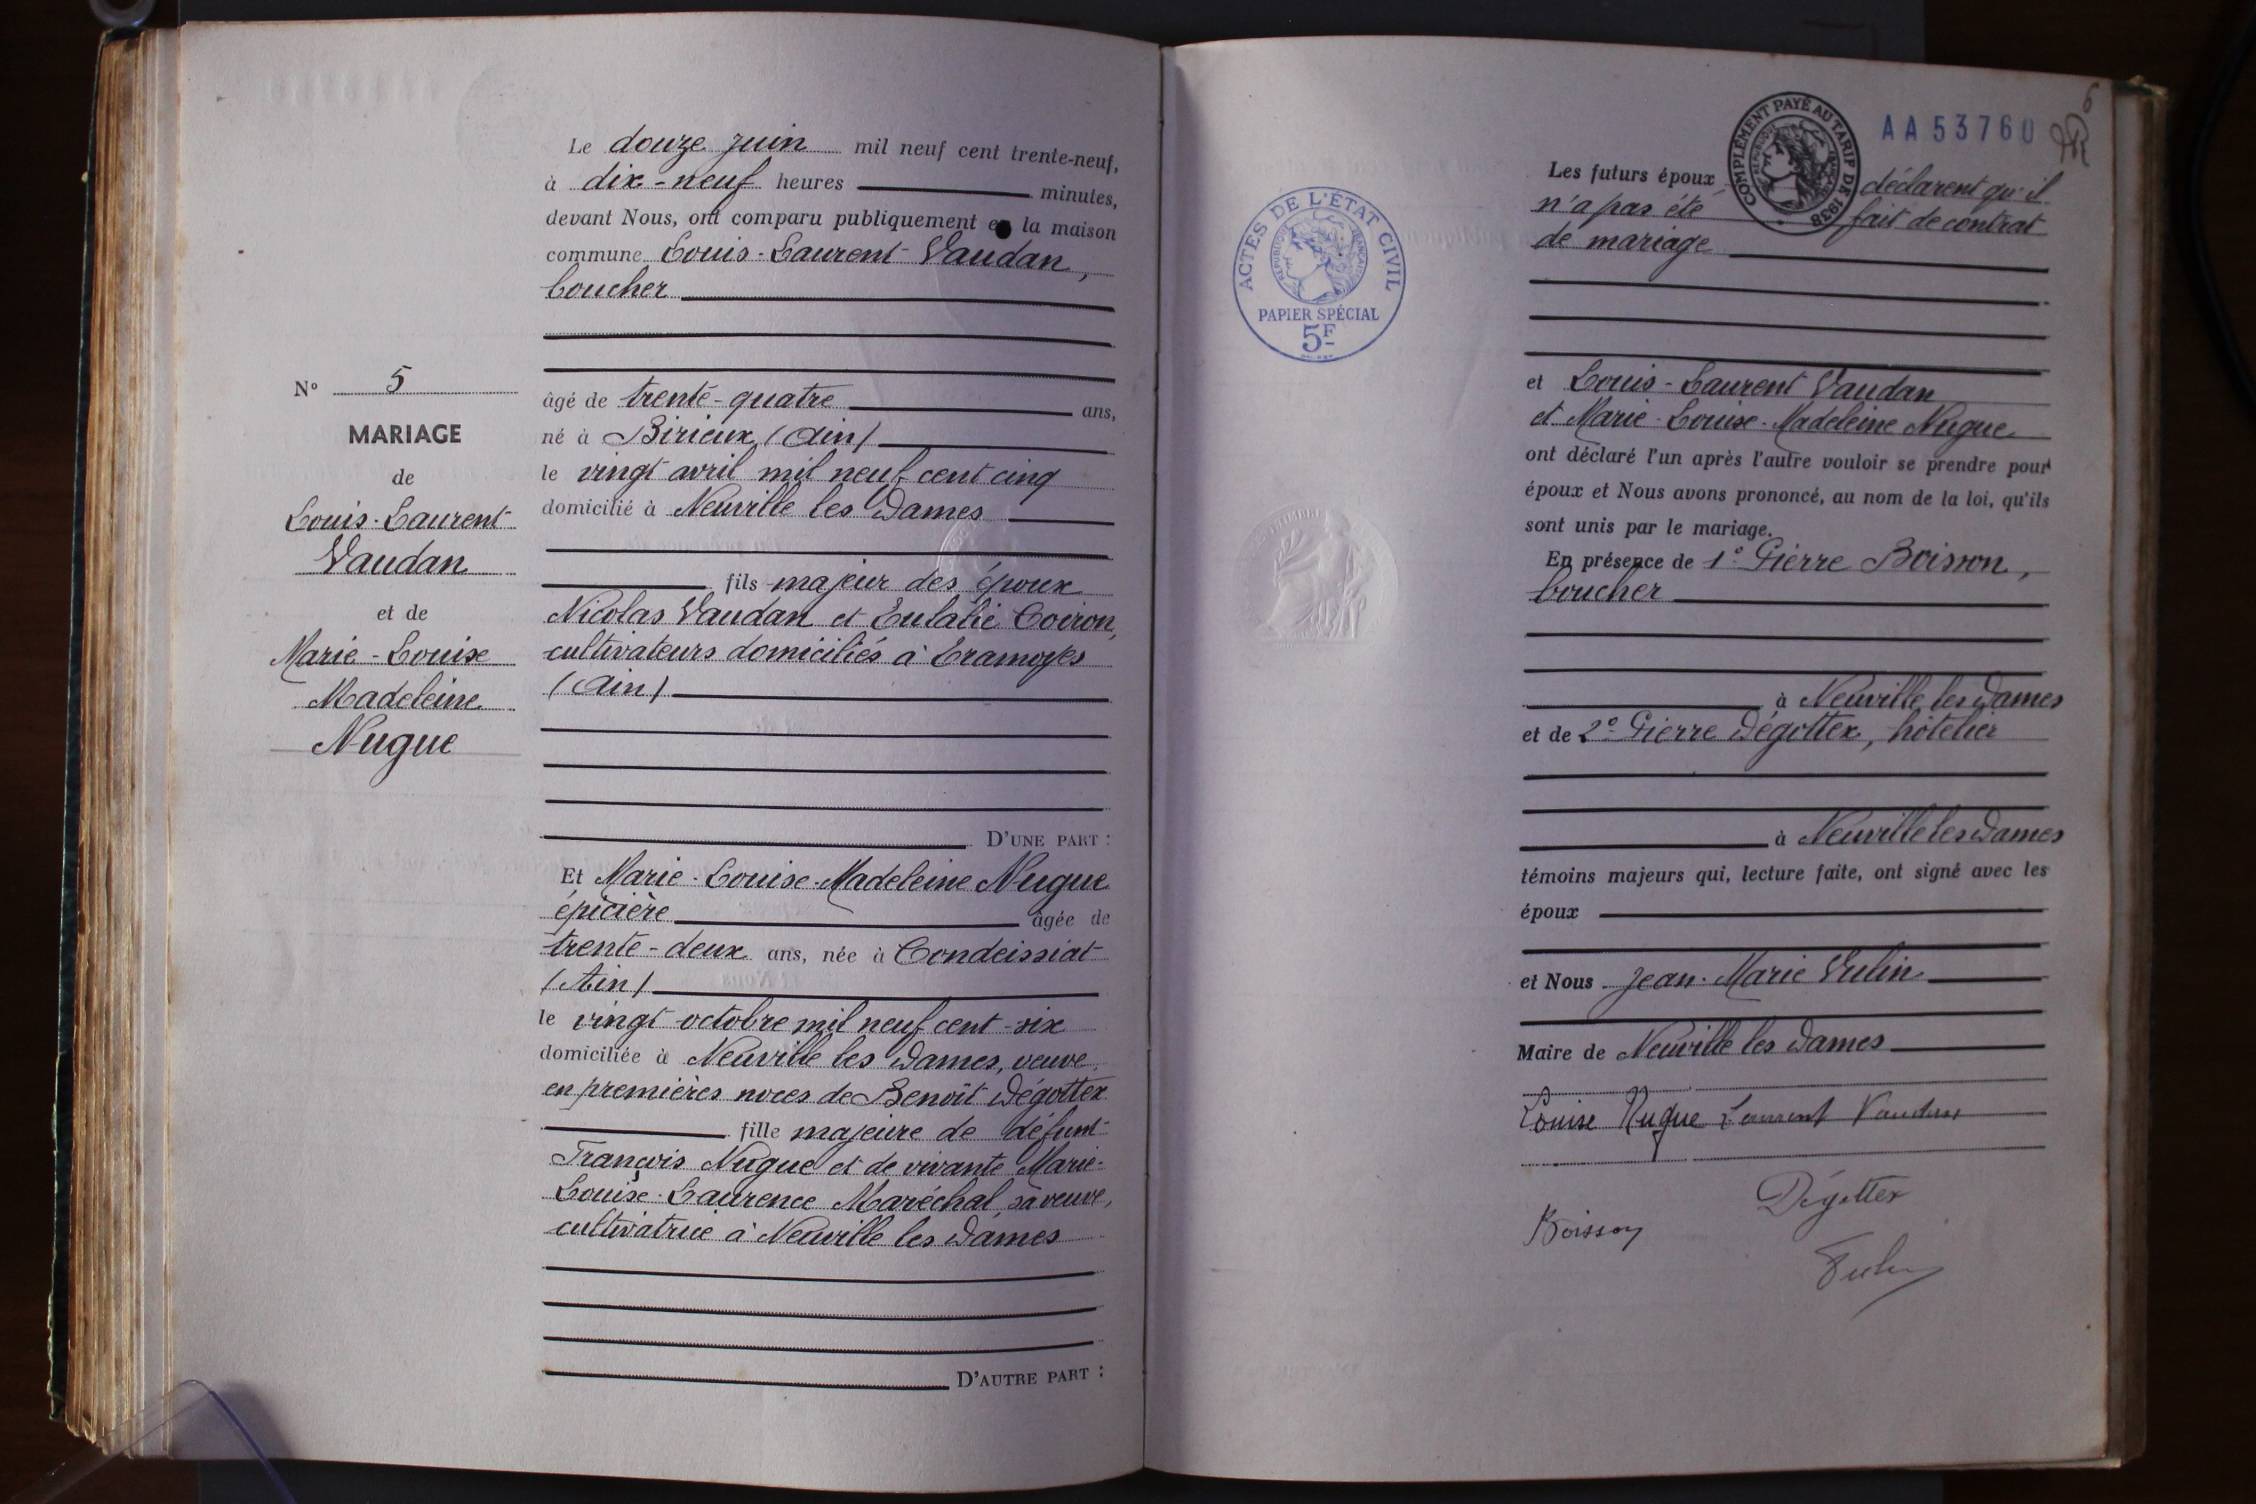 Le douze juin mil neuf cent trente-neuf,
à dix-neuf heures minutes,
devant Nous, ont comparu publiquement en la maison
commune Louis-Laurent Vaudan,
boucher
N° 5
MARIAGE
de
Louis-Laurent
Vaudan
et de
Marie-Louise
Madeleine
Nugue
âgé de trente-quatre ans,
né à Birieux (Ain)
le vingt avril mil neuf cent cinq
domicilié à Neuville les Dames
fils majeur des époux
Nicolas Vaudan et Eulalie Coiron,
cultivateurs domiciliés à Cramoyes
(Ain)
D'UNE PART :
Et Marie-Louise-Madeleine Nugue
épicière âgée de
trente-deux ans, née à Condeissiat
(Ain)
le vingt octobre mil neuf cent six
domiciliée à Neuville les Dames, veuve
en premières noces de Benoît Dégottex
fille majeure de défunt
François Nugue et de vivante Marie-
Louise-Laurence Maréchal, sa veuve,
cultivatrice à Neuville les Dames
D'AUTRE PART :
6
AA53760
COMPLÉMENT PAYÉ AU TARIF DE 1938
ACTES DE L'ÉTAT CIVIL
RÉPUBLIQUE FRANÇAISE
PAPIER SPÉCIAL
5F
Les futurs époux déclarent qu'il
n'a pas été fait de contrat
de mariage
et Louis-Laurent Vaudan
et Marie-Louise-Madeleine Nugue
ont déclaré l'un après l'autre vouloir se prendre pour
époux et Nous avons prononcé, au nom de la loi, qu'ils
sont unis par le mariage.
En présence de 1° Pierre Boisson,
boucher
à Neuville les Dames
et de 2° Pierre Dégottex, hôtelier
à Neuville les Dames
témoins majeurs qui, lecture faite, ont signé avec les
époux
et Nous Jean-Marie Vulin
Maire de Neuville les Dames
Louise Nugue Laurent Vaudan
Dégottex
Boisson
Vulin